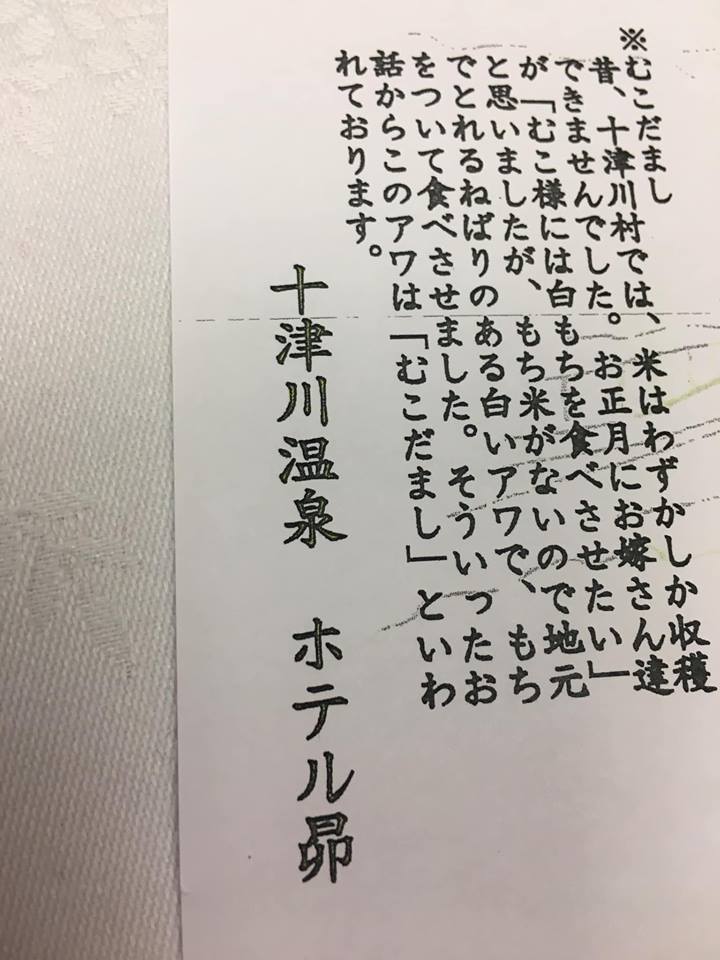 ※むこだまし
昔、十津川村では、米はわずかしか収穫
できませんでした。お正月にお嫁さん達
が「むこ様には白もちを食べさせたい」
と思いましたが、もち米がないので地元
でとれるねばりのある白いアワで、もち
をついて食べさせました。そういったお
話からこのアワは「むこだまし」といわ
れております。
十津川温泉 ホテル昴